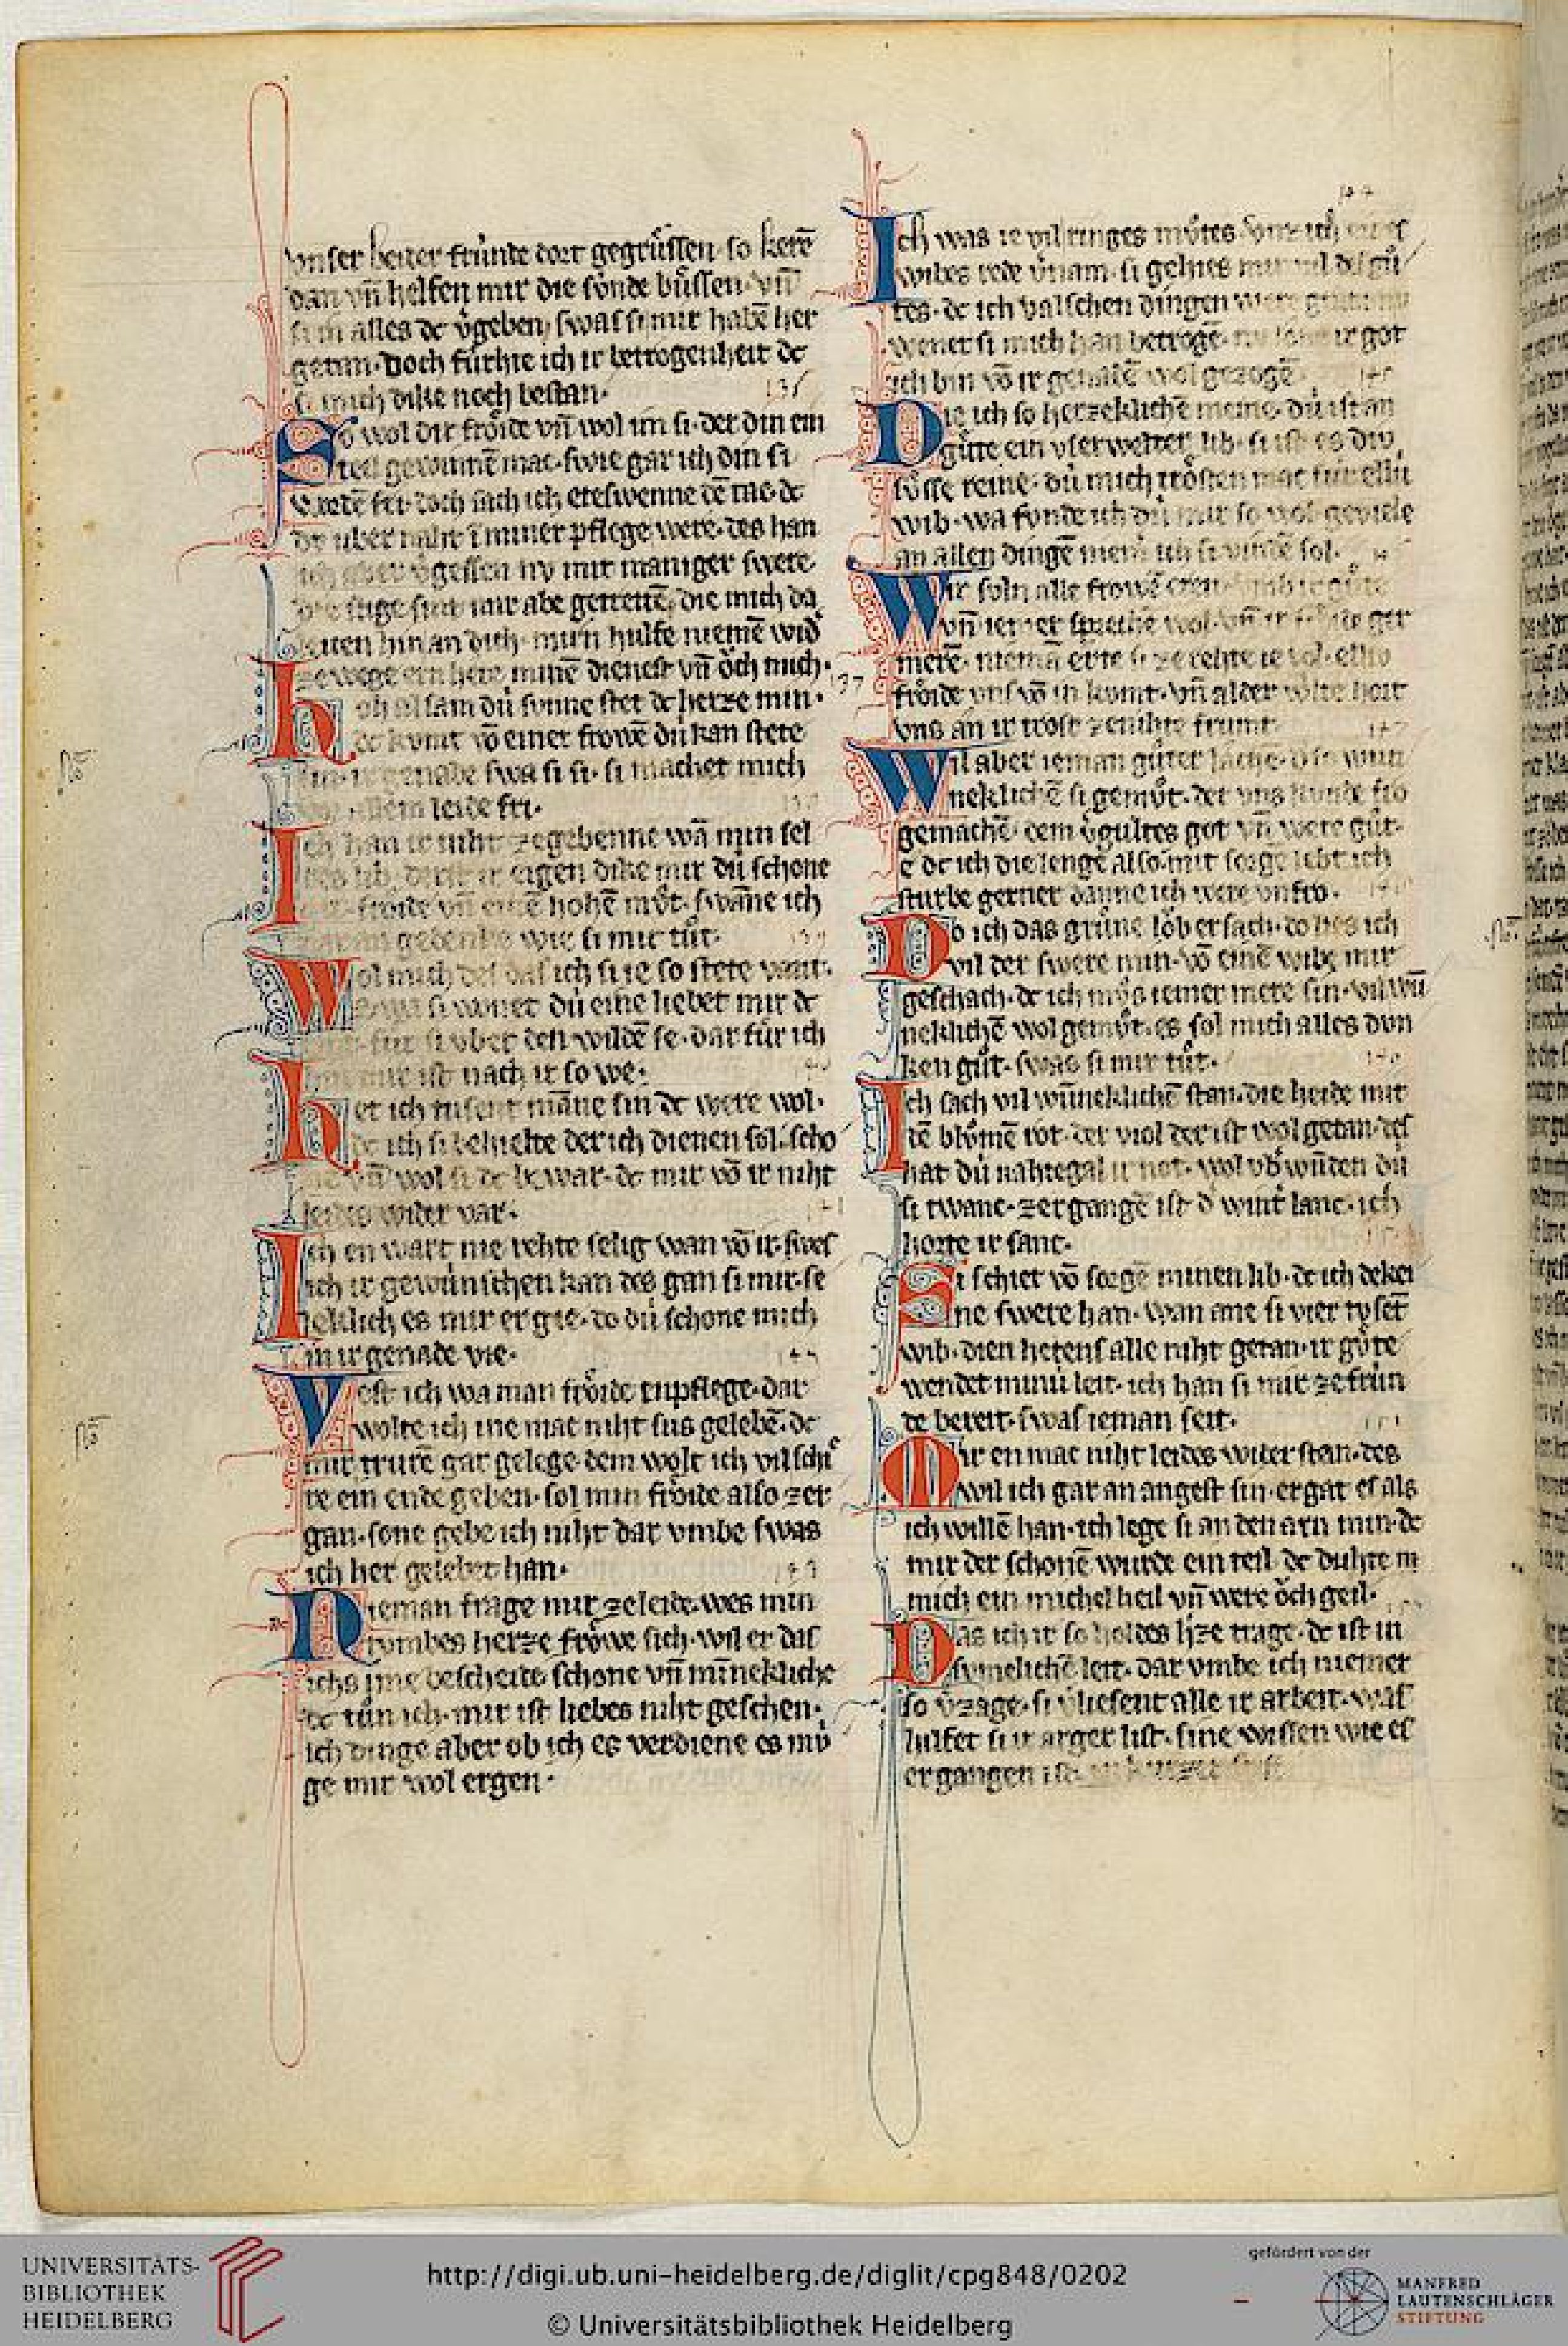 vnser beider frúnde dort gegruͤssen· so kerē
dan vn̄ helfen mir die súnde buͤssen· vn̄
si in alles dc v̓geben, swas si mir habē her
getan· Doch fúrhte ich ir betrogenheit dc
si mich dike noch bestan·
So wol dir froͤide vn̄ wol im si· der din ein
teil gewinnē mac· swie gar ich din si
wordē fri· doch sach ich eteswenne dē tac· dc
dv uber naht ī miner pflege were· des han
ich aber v̓gessen nv mit maniger swere·
die stige sint mir abe getretē, die mich da
leiten hin an dich· mirn hulfe niemē wid̓
ze wege ern hete minē dienest vn̄ oͮch mich·
hoh alsam dú sunne stet dc herze min·
dc kvmt vō einer frowē dú kan stete
sin· ir genade swa si si· si machet mich
vor allem leide fri·
Ich han ir niht zegebenne wā min sel
bes lib, derst ir eigen dike mir dú schone
git· froide vn̄ einē hohē mvͦt· swāne ich
daran gedenke wie si mir tuͦt·
Wol mich des das ich si ie so stete vant·
swa si wonet dú eine liebet mir dc
lant· fur si vber den wildē se· dar für ich
hin mir ist nach ir so we·
het ich tusent māne sin dc were wol·
dc ich si behielte der ich dienen sol· scho
ne vn̄ wol si dc bewar· dc mir vō ir niht
leides wider var·
Ich en wart nie rehte selig wan vō ir· swes
ich ir gewúnschen kan des gan si mir· se
leklich es mir ergie· do dú schone mich
in ir genade vie·
West ich wa man froͤide enpflege· dar
wolte ich ine mac niht sus gelebē· dc
mir trurē gar gelege· dem wolt ich vil schi
re ein ende geben· sol min froͤide also zer
gan· sone gebe ich niht dar vmbe swas
ich her gelebet han·
Nieman frage mir zeleide· wes min
tvmbes herze froͤwe sich· wil er das
ichs ime bescheide schone vn̄ minekliche
dc tuͦn ich· mir ist liebes niht geschen·
ich dinge aber ob ich es verdiene es mú
ge mir wol ergen·
Ich was ie vil ringes muͦtes· vnz ich eines
wibes rede v̓nam· si gehies mir vil des guͦ
tes· dc ich valschen dingen were
wenet si mich han betrogē· nv lone ir got
ich bin vō ir genadē wol gezogē
Die ich so herzeklichē meine· dú ist an
guͤte ein vserwelter lib· si ist es dú
suͤsse reine· dú mich troͤsten mac fúr ellú
wib· wa funde ich dú mir so wol geviele
an allen dingē niem ich si vindē sol·
Wir soln alle frowē eren vmb ir guͤte
vn̄ iemer sprechē wol· vn̄ ir froͤide ger
merē· niemā erte si ze rehte ie wol· ellú
froͤide vns vō in kvmt· vn̄ al der welte heit
vns an ir trost zenihte frumt·
Wil aber ieman guͦter lachē· d̓ so win
neklichē si gemuͦt· der vns kunde fro
gemachē· dem v̓gultes got vn̄ were guͦt·
e dc ich die lenge also mit sorgē lebt ich
sturbe gerner danne ich were vnfro·
Do ich das gruͤne loͮb ersach· do lies ich
vil der swere min· vō einē wibe mir
geschach· dc ich mvͦs iemer mere sin· vil wū
neklichē wol gemuͦt· es sol mich alles dvn
ken guͦt· swas si mir tuͦt·
Ich sach vil wúneklichē stan· die heide mit
dē bluͦmē rot· der viol der ist wol getan· des
hat dú nahtegal ir not· wol vb̓wūden dú
si twanc· zergangē ist d̓ wint̓ lanc· ich
horte ir sanc·
Si schiet vō sorgē minen lib· dc ich dekei
ne swere han· wan ane si vier tvsēt
wib· dien hetens alle niht getan· ir guͤte
wendet minú leit· ich han si mir ze frún
de bereit· swas ieman seit·
Mir en mac niht leides wider stan· des
wil ich gar an angest sin· ergat es als
ich willē han· ich lege si an den arn min· dc
mir der schonē wurde ein teil· dc duhte m
mich ein michel heil vn̄ were oͮch geil·
Das ich ir so holdes hze trage· dc ist in
sumelichē leit· dar vmbe ich niemer
so v̓zage· si v̓liesent alle ir arbeit· was
hilfet si ir arger list· sine wissen wie es
ergangen ist·
UNIVERSITÄTS-
BIBLIOTHEK
HEIDELBERG
http://digi.ub.uni-heidelberg.de/diglit/cpg848/0202
© Universitätsbibliothek Heidelberg
gefördert von der
MANFRED
LAUTENSCHLÄGER
STIFTUNG